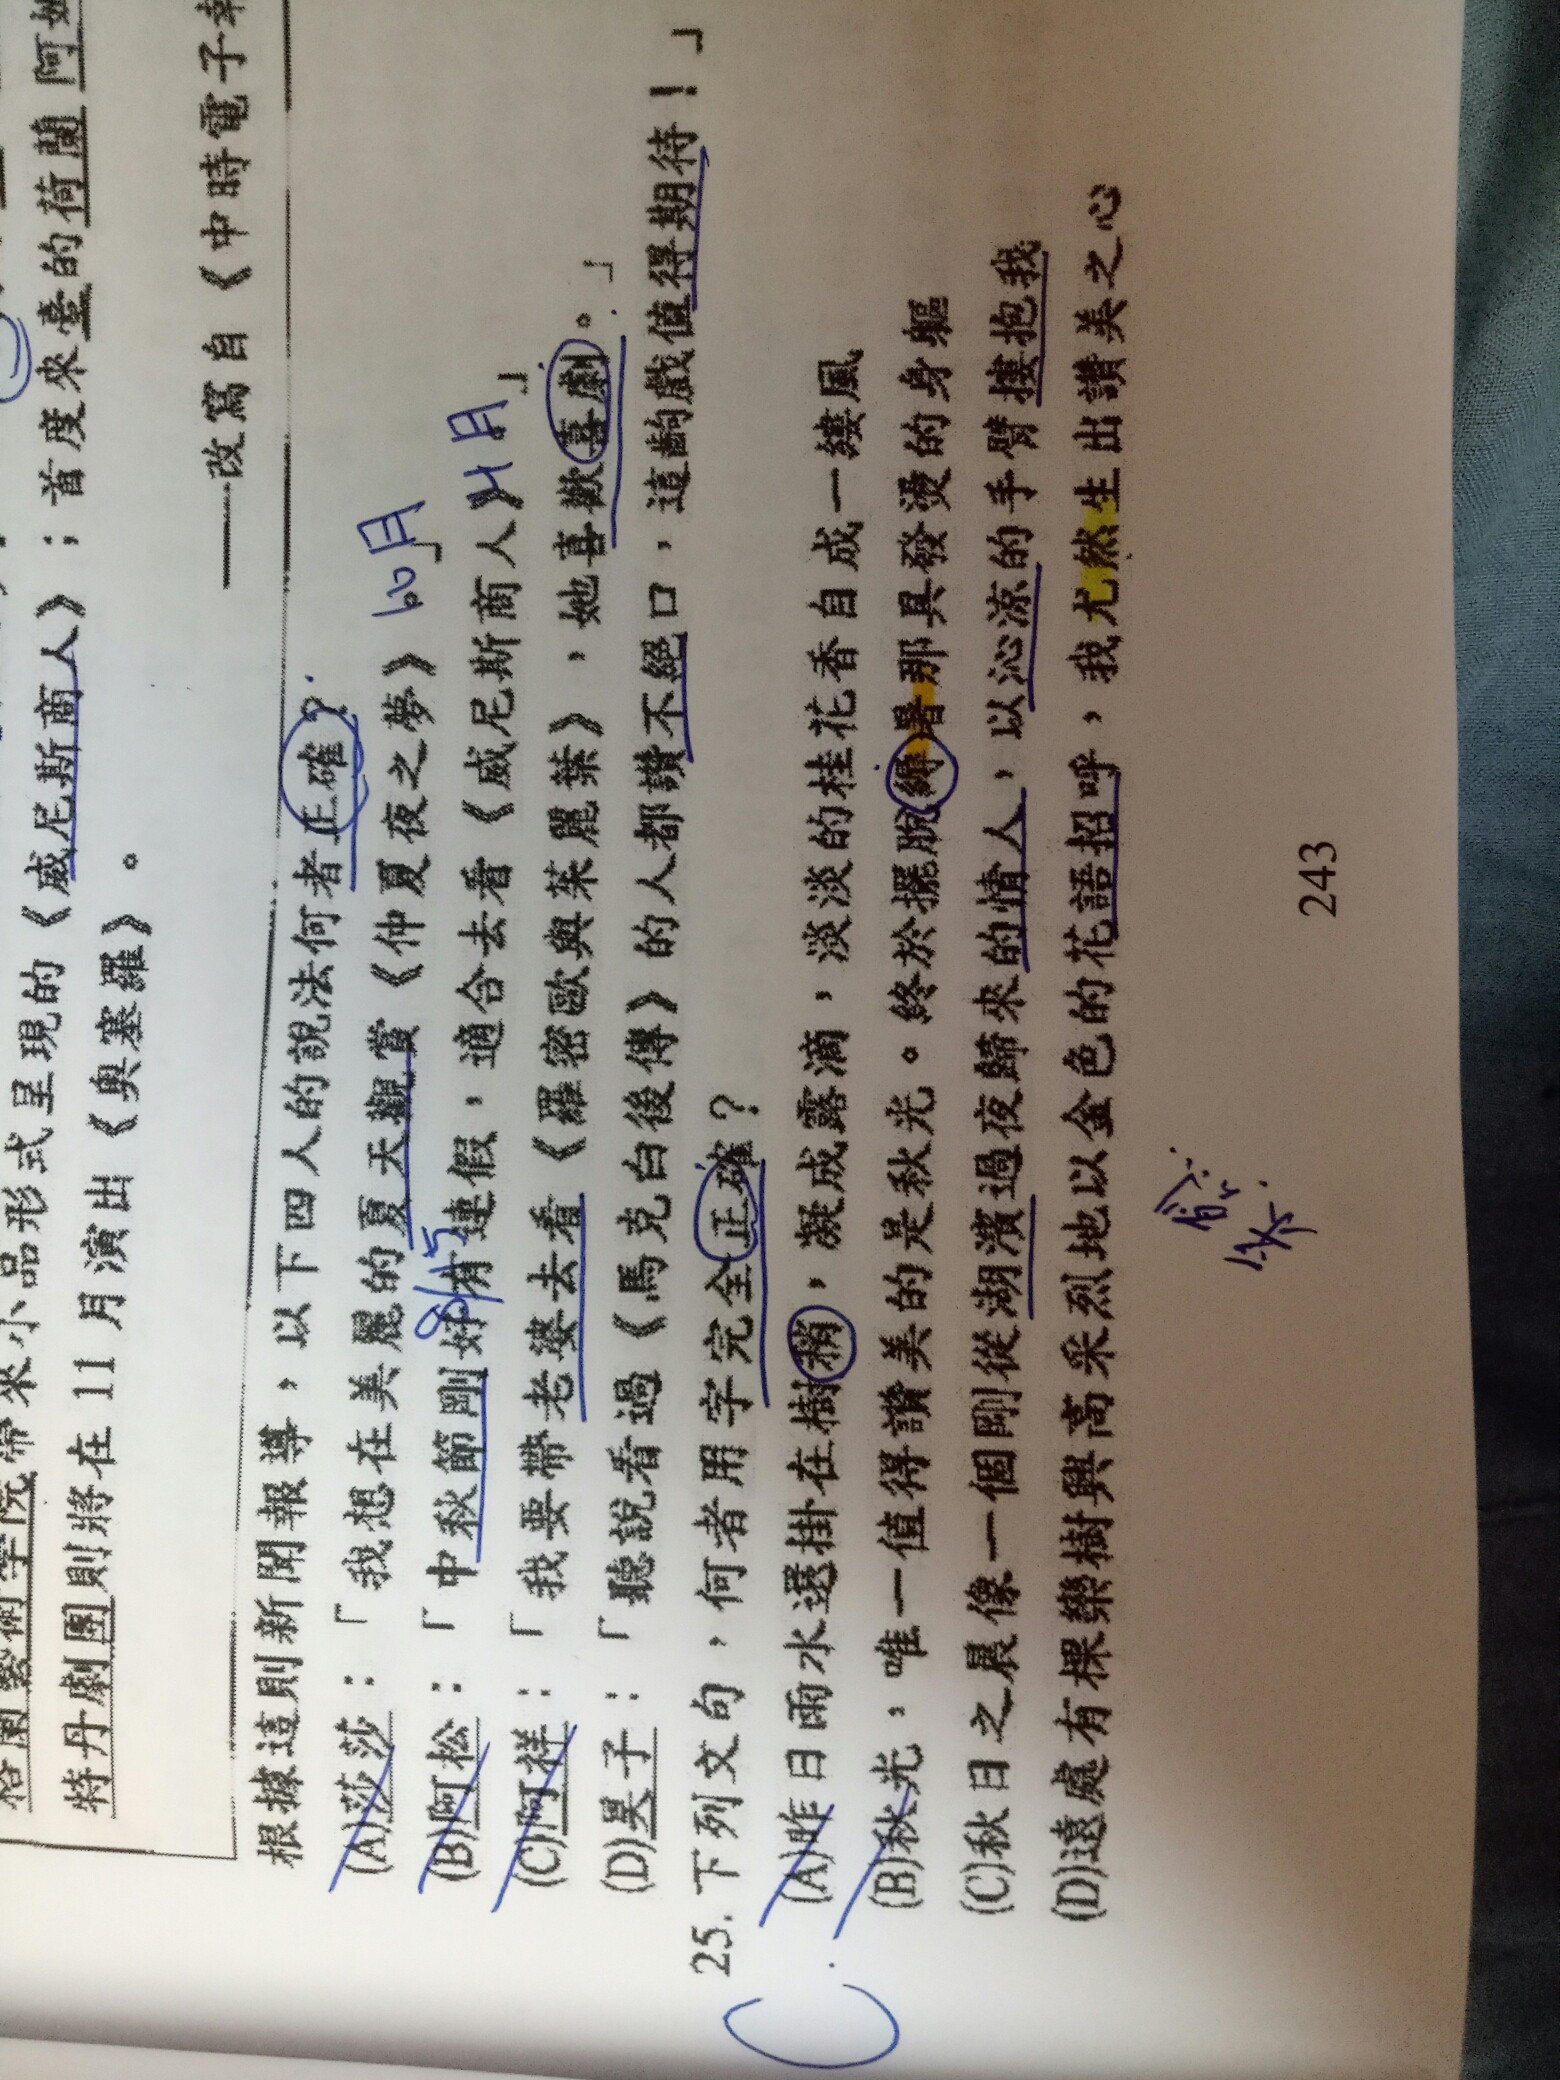 特丹劇團則將在 11 月演出《奧塞羅》。
帶來小品形式呈現的《威尼斯商人》；首度來臺的荷蘭阿姆
——改寫自《中時電子報
根據這則新聞報導，以下四人的說法何者正確？
(A)莎莎：「我想在美麗的夏天觀賞《仲夏夜之夢》」
(B)阿松：「中秋節剛好有連假，適合去看《威尼斯商人》」
8/15
(C)阿祥：「我要帶老婆去看《羅密歐與茱麗葉》，她喜歡喜劇。」
(D)昊子：「聽說看過《馬克白後傳》的人都讚不絕口，這齣戲值得期待！」
25. 下列文句，何者用字完全正確？
(A)昨日雨水還掛在樹稍，凝成露滴，淡淡的桂花香自成一縷風
(B)秋光，唯一值得讚美的是秋光。終於擺脫縟暑那具發燙的身軀
(C)秋日之晨像一個剛從湖濱過夜歸來的情人，以沁涼的手臂摟抱我
(D)遠處有棵欒樹興高采烈地以金色的花語招呼，我尤然生出讚美之心
C
243